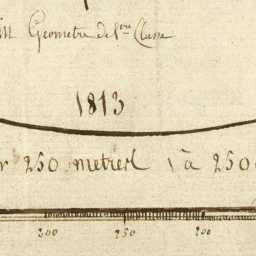 Geometre de 1ere Classe
1813
250 metres 1 à 250
300 250 200